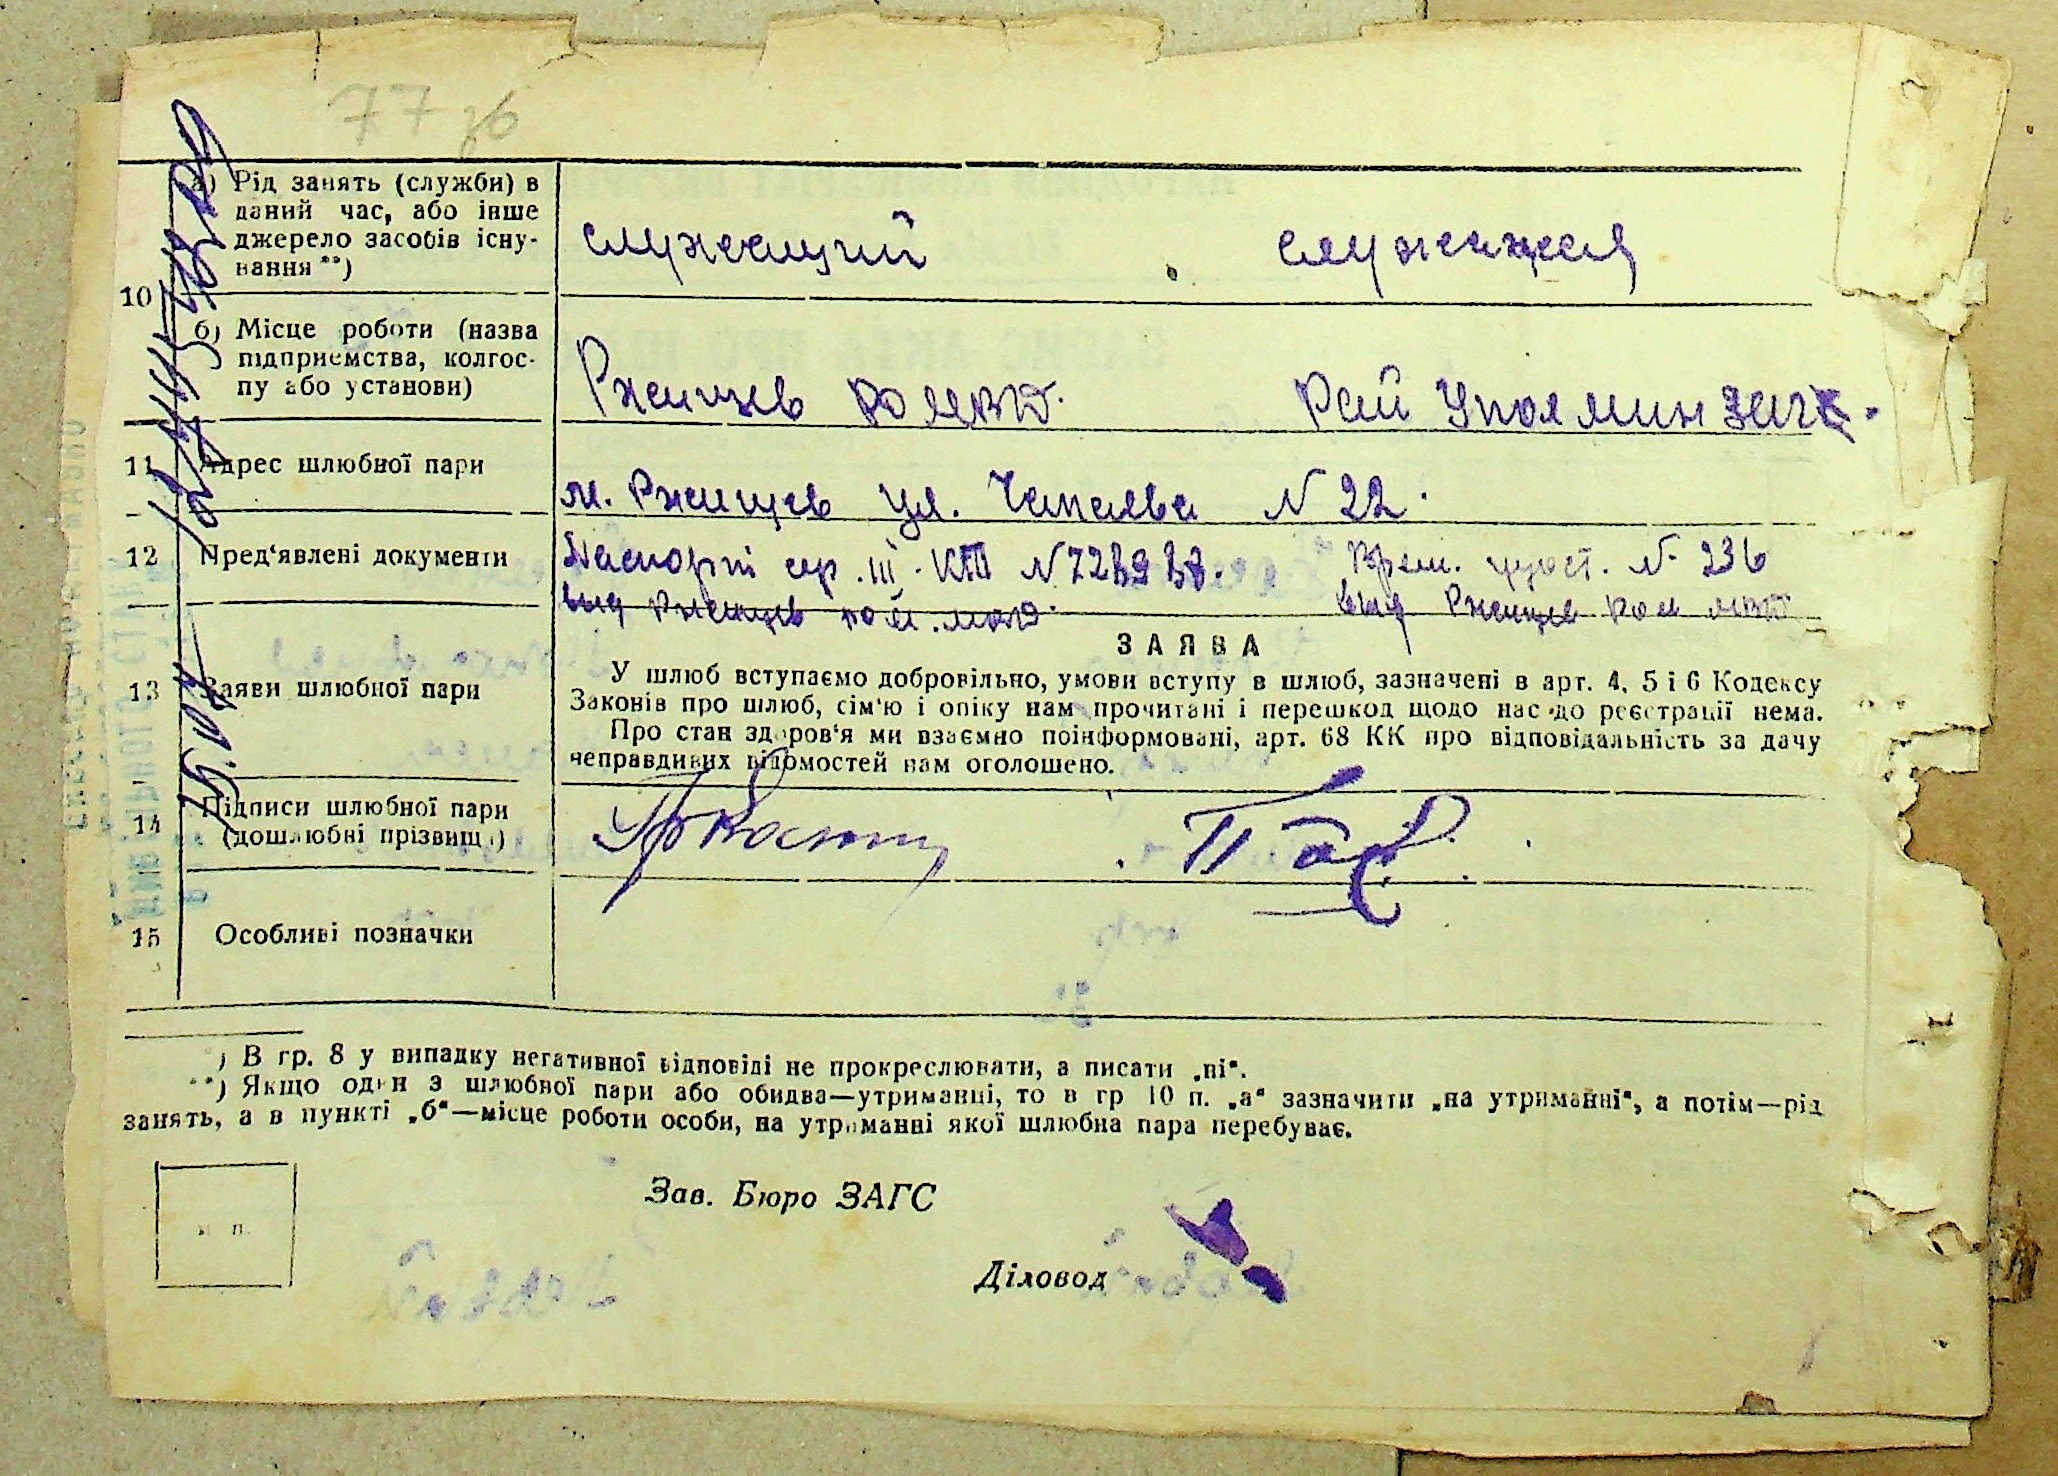 77 зб
а) Рід занять (служби) в
даний час, або інше
джерело засобів існу-
вання **)
служащий служащая
10
б) Місце роботи (назва
підприємства, колгос-
пу або установи)
Ржищев РО МВД. Рай Уполминзаг.
11 Адрес шлюбної пари
м. Ржищев ул. Чапаева N 22.
12 Пред'явлені документи
Паспорт сер. III N Врем. удост. N 236
выд Ржищев выд Ржищев РО МВД
ЗАЯВА
13 Заяви шлюбної пари
У шлюб вступаємо добровільно, умови вступу в шлюб, зазначені в арт. 4, 5 і 6 Кодексу
Законів про шлюб, сім'ю і опіку нам прочитані і перешкод щодо нас до реєстрації нема.
Про стан здоров'я ми взаємно поінформовані, арт. 68 КК про відповідальність за дачу
неправдивих відомостей нам оголошено.
14 Підписи шлюбної пари
(дошлюбні прізвища)
15 Особливі позначки
*) В гр. 8 у випадку негативної відповіді не прокреслювати, а писати „ні“.
**) Якщо один з шлюбної пари або обидва—утриманці, то в гр 10 п. „а“ зазначити „на утриманні“, а потім—рід
занять, а в пункті „б“—місце роботи особи, на утриманні якої шлюбна пара перебуває.
м п.
Зав. Бюро ЗАГС
Діловод